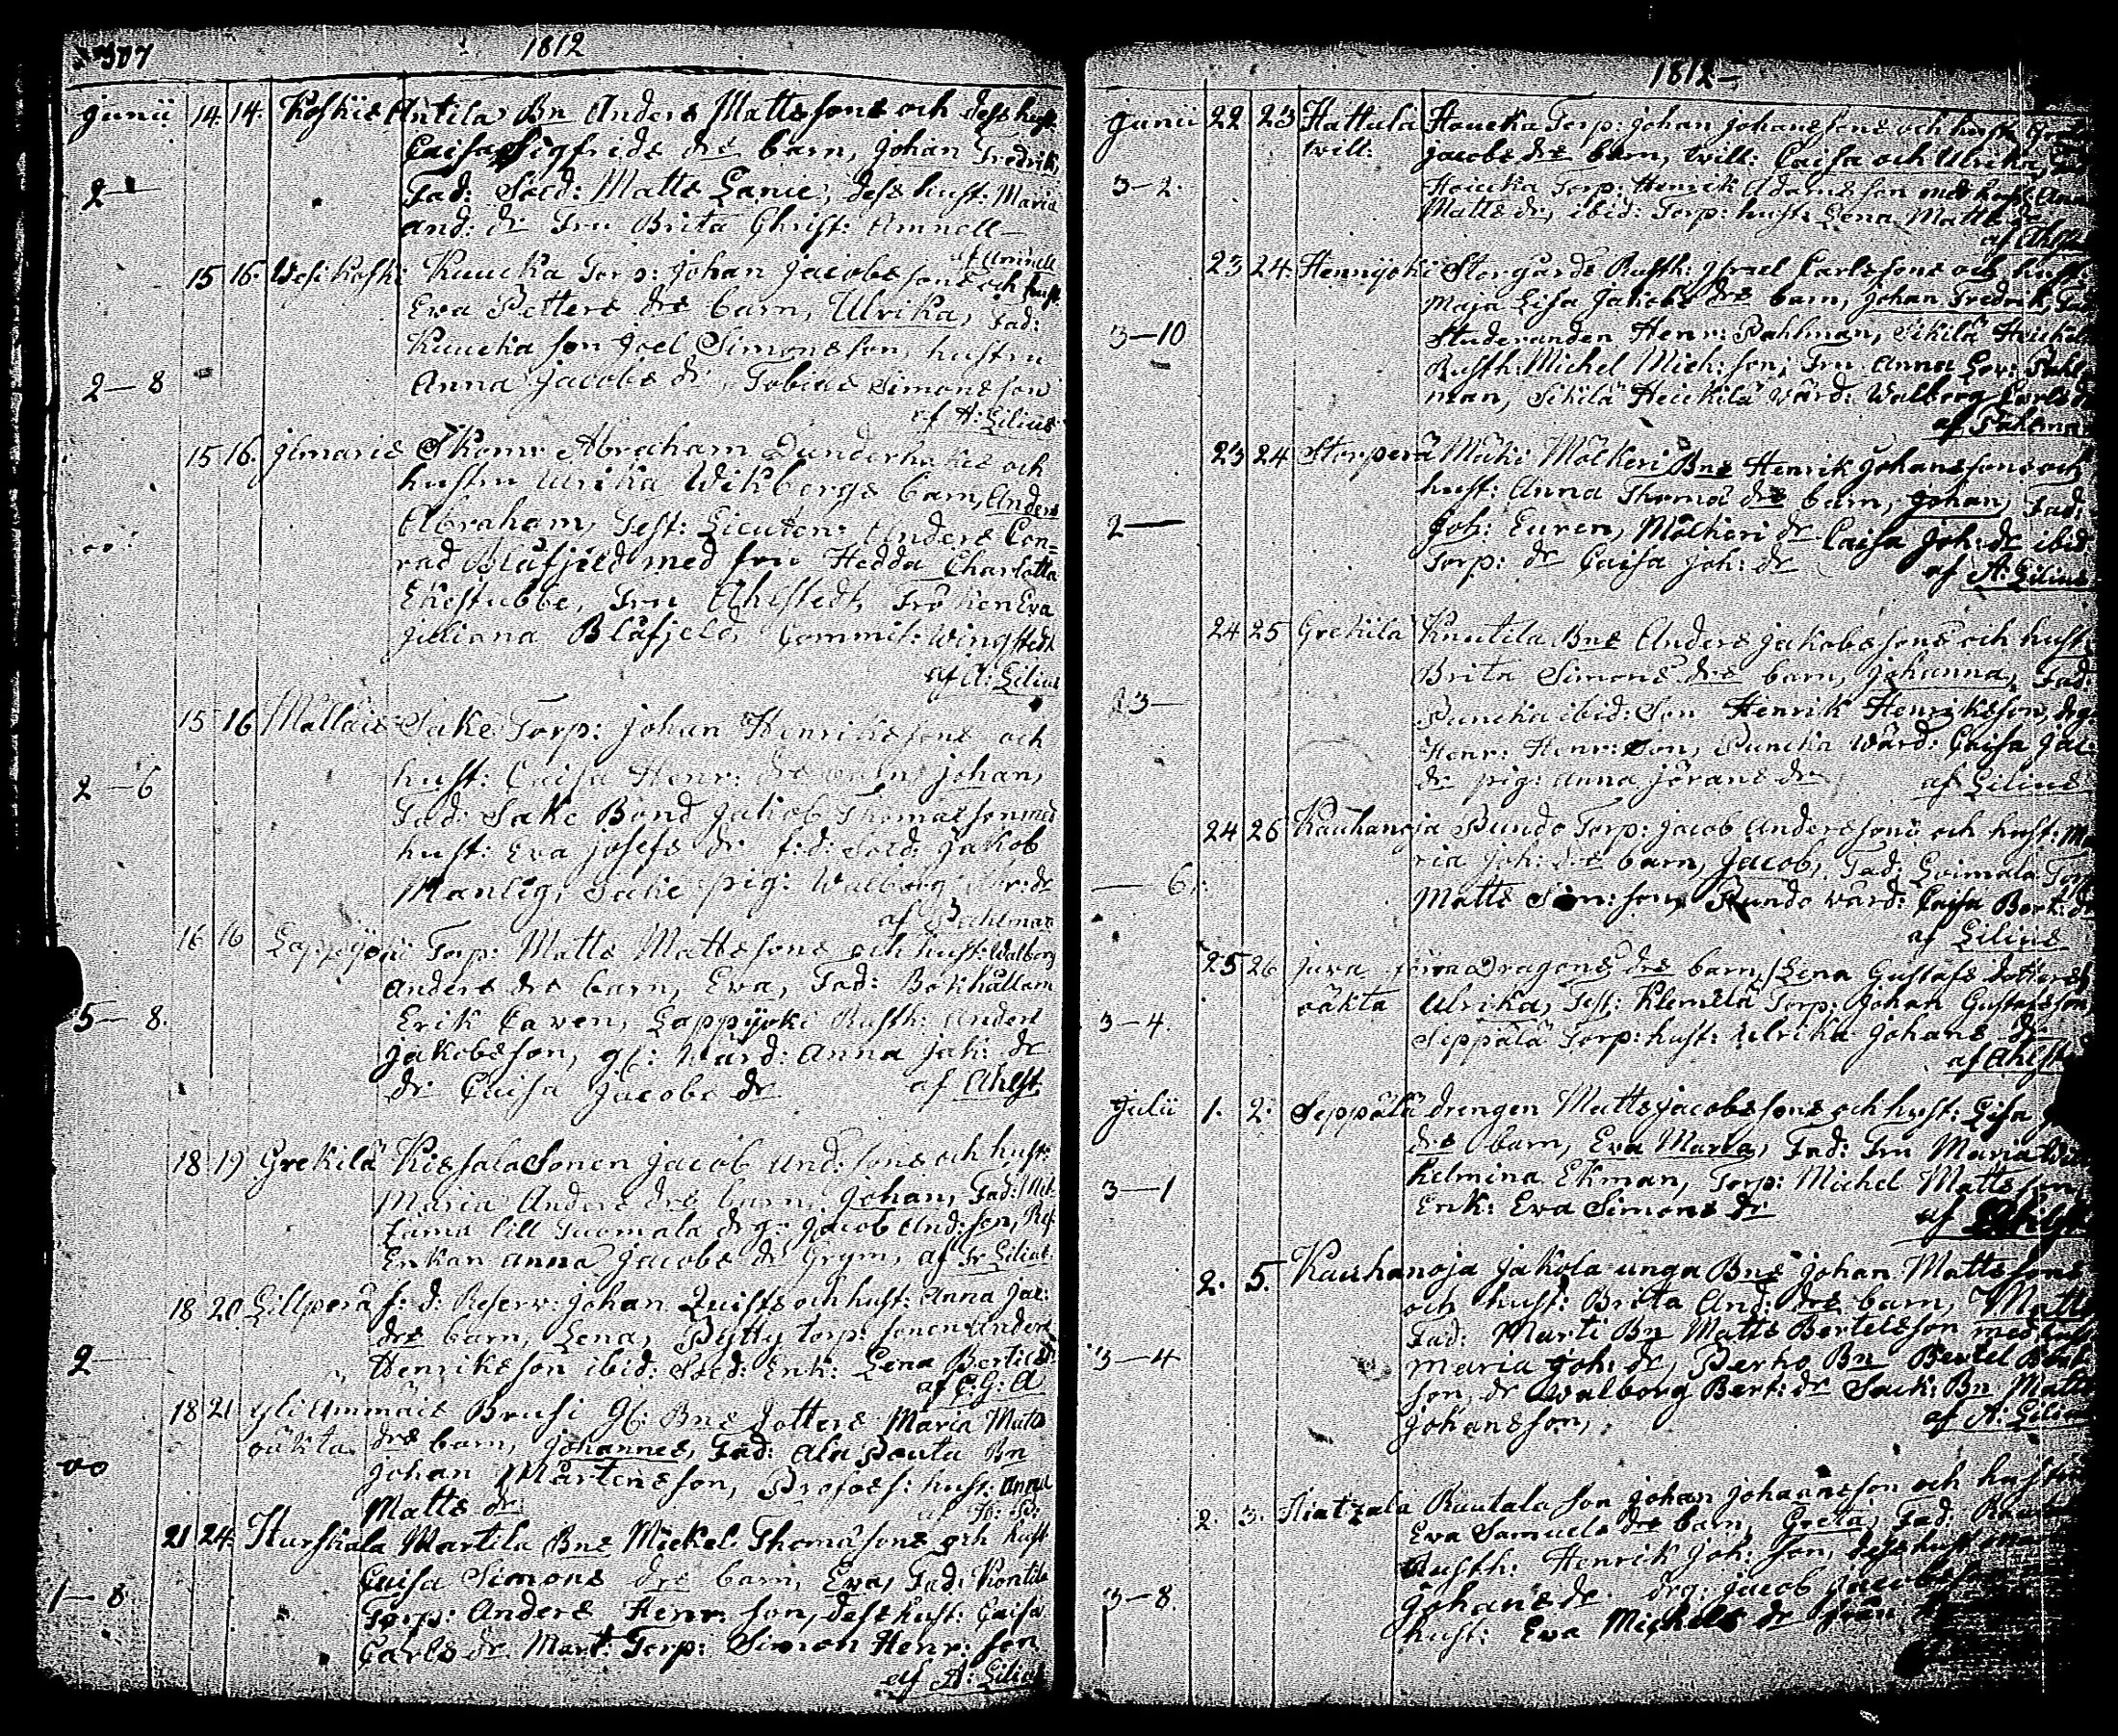 307 1812
Junii 14. 14. Koskis Antila Bn Anders Mattssons och dess hust.
Caisa Sigfrids drs barn, Johan Fredrik,
2 Fad: Sold: Matts Lanie, dess hust: Maria
And: dr Fru Brita Christ: Amnell
af Amnell
15 16. Wesikoski Kuucka Torp: Johan Jacobssons och hust.
Eva Petters drs barn, Ulrika, Fad:
Kuucka son Joel Simonsson, hustru
2 — 8 Anna Jacobs dr Tobias Simonsson
af A: Lilius
15 16. Jlmaris Skom: Abraham Dunderhakes och
hustru Ulrika Wikbergs barn, Anders
Abraham, Test: Lieuten: Anders Con=
rad Blåfjeld med fru Hedda Charlotta
Ekestubbe, Fru Ahlstedt, Fröken Eva
Juliana Blåfjeld, Commis: Wingstedt
af A: Lilius
15 16 Mällais Sake Torp: Johan Henrikssons och
hust: Caisa Henr: drs barn Johan,
2 — 6
Fad: Sake Bond Jakob Thomasson med
hust: Eva Josefs dr f:d: Sold: Jakob
Manlig, Sake pig: Walborg dr
af Pahlman
16 16 Loppijoki Torp: Matts Mattssons och hust: Walborg
Anders drs barn, Eva, Fad: Bokhållarn
5 — 8. Erik Caven, Loppijoki Rusth: Anders
Jakobsson, gl: Wärd: Anna Jak: dr
dr Caisa Jacobs dr af Ahlst.
18 19 Grekilä Kissala Sonen Jacob And: sons och hust:
Maria Anders drs barn, Johan, Fad:
lill Tuomala drg: Jacob And: son,
Enkan Anna Jacobs dr Grym, af Fr Lilius.
18 20. Lillperä f: d: Reserv: Johan Quists och hust: Anna Jac:
drs barn, Lena, Pytty torp: sonen Anders
2 Henriksson ibid: Sold: Enk: Lena Bertils dr
af C: G: A
18 21 Yliammäis Brusi gl: Bns Dotters Maria Matts
oäkta drs barn, Johannes, Fad: Ala Pouta Bn
oo Johan Mårtensson, Profoss: hust: Anna
Matts dr
21 24. Hurskala Martila Bns Mickel Thomassons och hust
Caisa Simons drs barn, Eva, Fad: Kontila
1 — 8. Torp: Anders Henr: son, dess hust: Caisa
Carls dr Mart: Torp: Simon Henr: son
af A: Lilius
1812
Junii 22 23 Hattula Houcka Torp: Johan Johanssons och hust
twill: Jacobs drs barn, twill: Caisa och Ulrika,
3—2. Houcka Torp: Henrik Adamsson med hust: Anna
Matts dr, ibid: Torp: hust: Lena Matts dr
af Ahlst
23 24. Hennijoki Storgårds Rusth: Jsrael Carlssons och hust:
Maja Lisa Jakobs drs barn, Johan Fredrik, Fad
3—10 Studeranden Henr: Pahlman, Sikilä Heickilä
Rusth: Michel Mich: son, Fru Anna Lov: Pahl
man, Sikilä Heickilä Wärd: Walborg Carls dr
af Pahlman
23 24 Storperä Mäki Mölkeri Bns Henrik Johanssons och
hust: Anna Thoma drs barn, Johan, Fad:
2— Joh: Euren, Mölkeri dr Caisa Joh: dr ibid
Torp: dr Caisa Joh: dr af A: Lilius
24 25 Grekila Knutila Bns Anders Jakobssons och hust:
Brita Simons drs barn, Johanna, Fad:
3— Puncka ibid: Son Henrik Henriksson, drg
Henr: Henr: son, Puncka Wärd: Caisa Jac:
dr pig: Anna Jörans dr af Lilius
24 26 Kauhanoja Pundo Torp: Jacob Anderssons och hust: Ma
ria Joh: drs barn, Jacob, Fad: Loimala Torp
— 6. Matts Sim: son, Pundo Wärd: Caisa Bert: dr
af Lilius
25 26 Juva Juva Dragons drs barn, / Lena Gustafs dotters /
oäkta Ulrika, Test: Klemelä Torp: Johan Gustafsson,
3—4. Seppälä Torp: hust: Ulrika Johans dr
af Ahlst.
Julii 1. 2. Seppälä drengen Matts Jacobssons och hust: Lisa
drs barn, Eva Maria, Fad: Fru Maria Wil
3—1 helmina Ekman, Torp: Michel Mattsson,
Enk: Eva Simons dr
2. 5. Kauhanoja Jakola unga Bns Johan Mattssons
och hust: Brita And: drs barn, Matts
Fad: Marti Bn Matts Bertelsson med hust
3—4 Maria Joh: dr, Perho Bn Bertel Bert:
son, dr Walborg Bert: dr Sack: Bn Matts
Johansson, af A: Lilius
2. 3. Hiatzala Rautala son Johan Johansson och hustru
Eva Samuels drs barn, Greta, Fad:
Rusth: Henrik Joh: son, dess hust
3—8. Johans dr drg: Jacob Jacobsson
hust: Eva Michels dr från